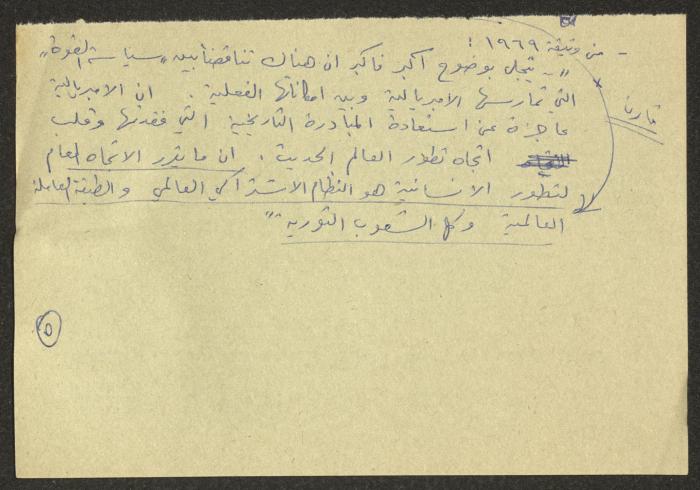 - من وثيقة ١٩٦٩ :
"- يتجلى بوضوح اكبر فاكبر ان هناك تناقضاً بين "سياسة القوة"
التي تمارسها الامبريالية وبين امكاناتها الفعلية . ان الامبريالية
عاجزة عن استعادة المبادرة التاريخية التي فقدتها وقلب
اتجاه تطور العالم الحديث . ان ما يقرر الاتجاه العام
لتطور الانسانية هو النظام الاشتراكي العالمي والطبقة العاملة
العالمية وكل الشعوب الثورية"
قارن
٥